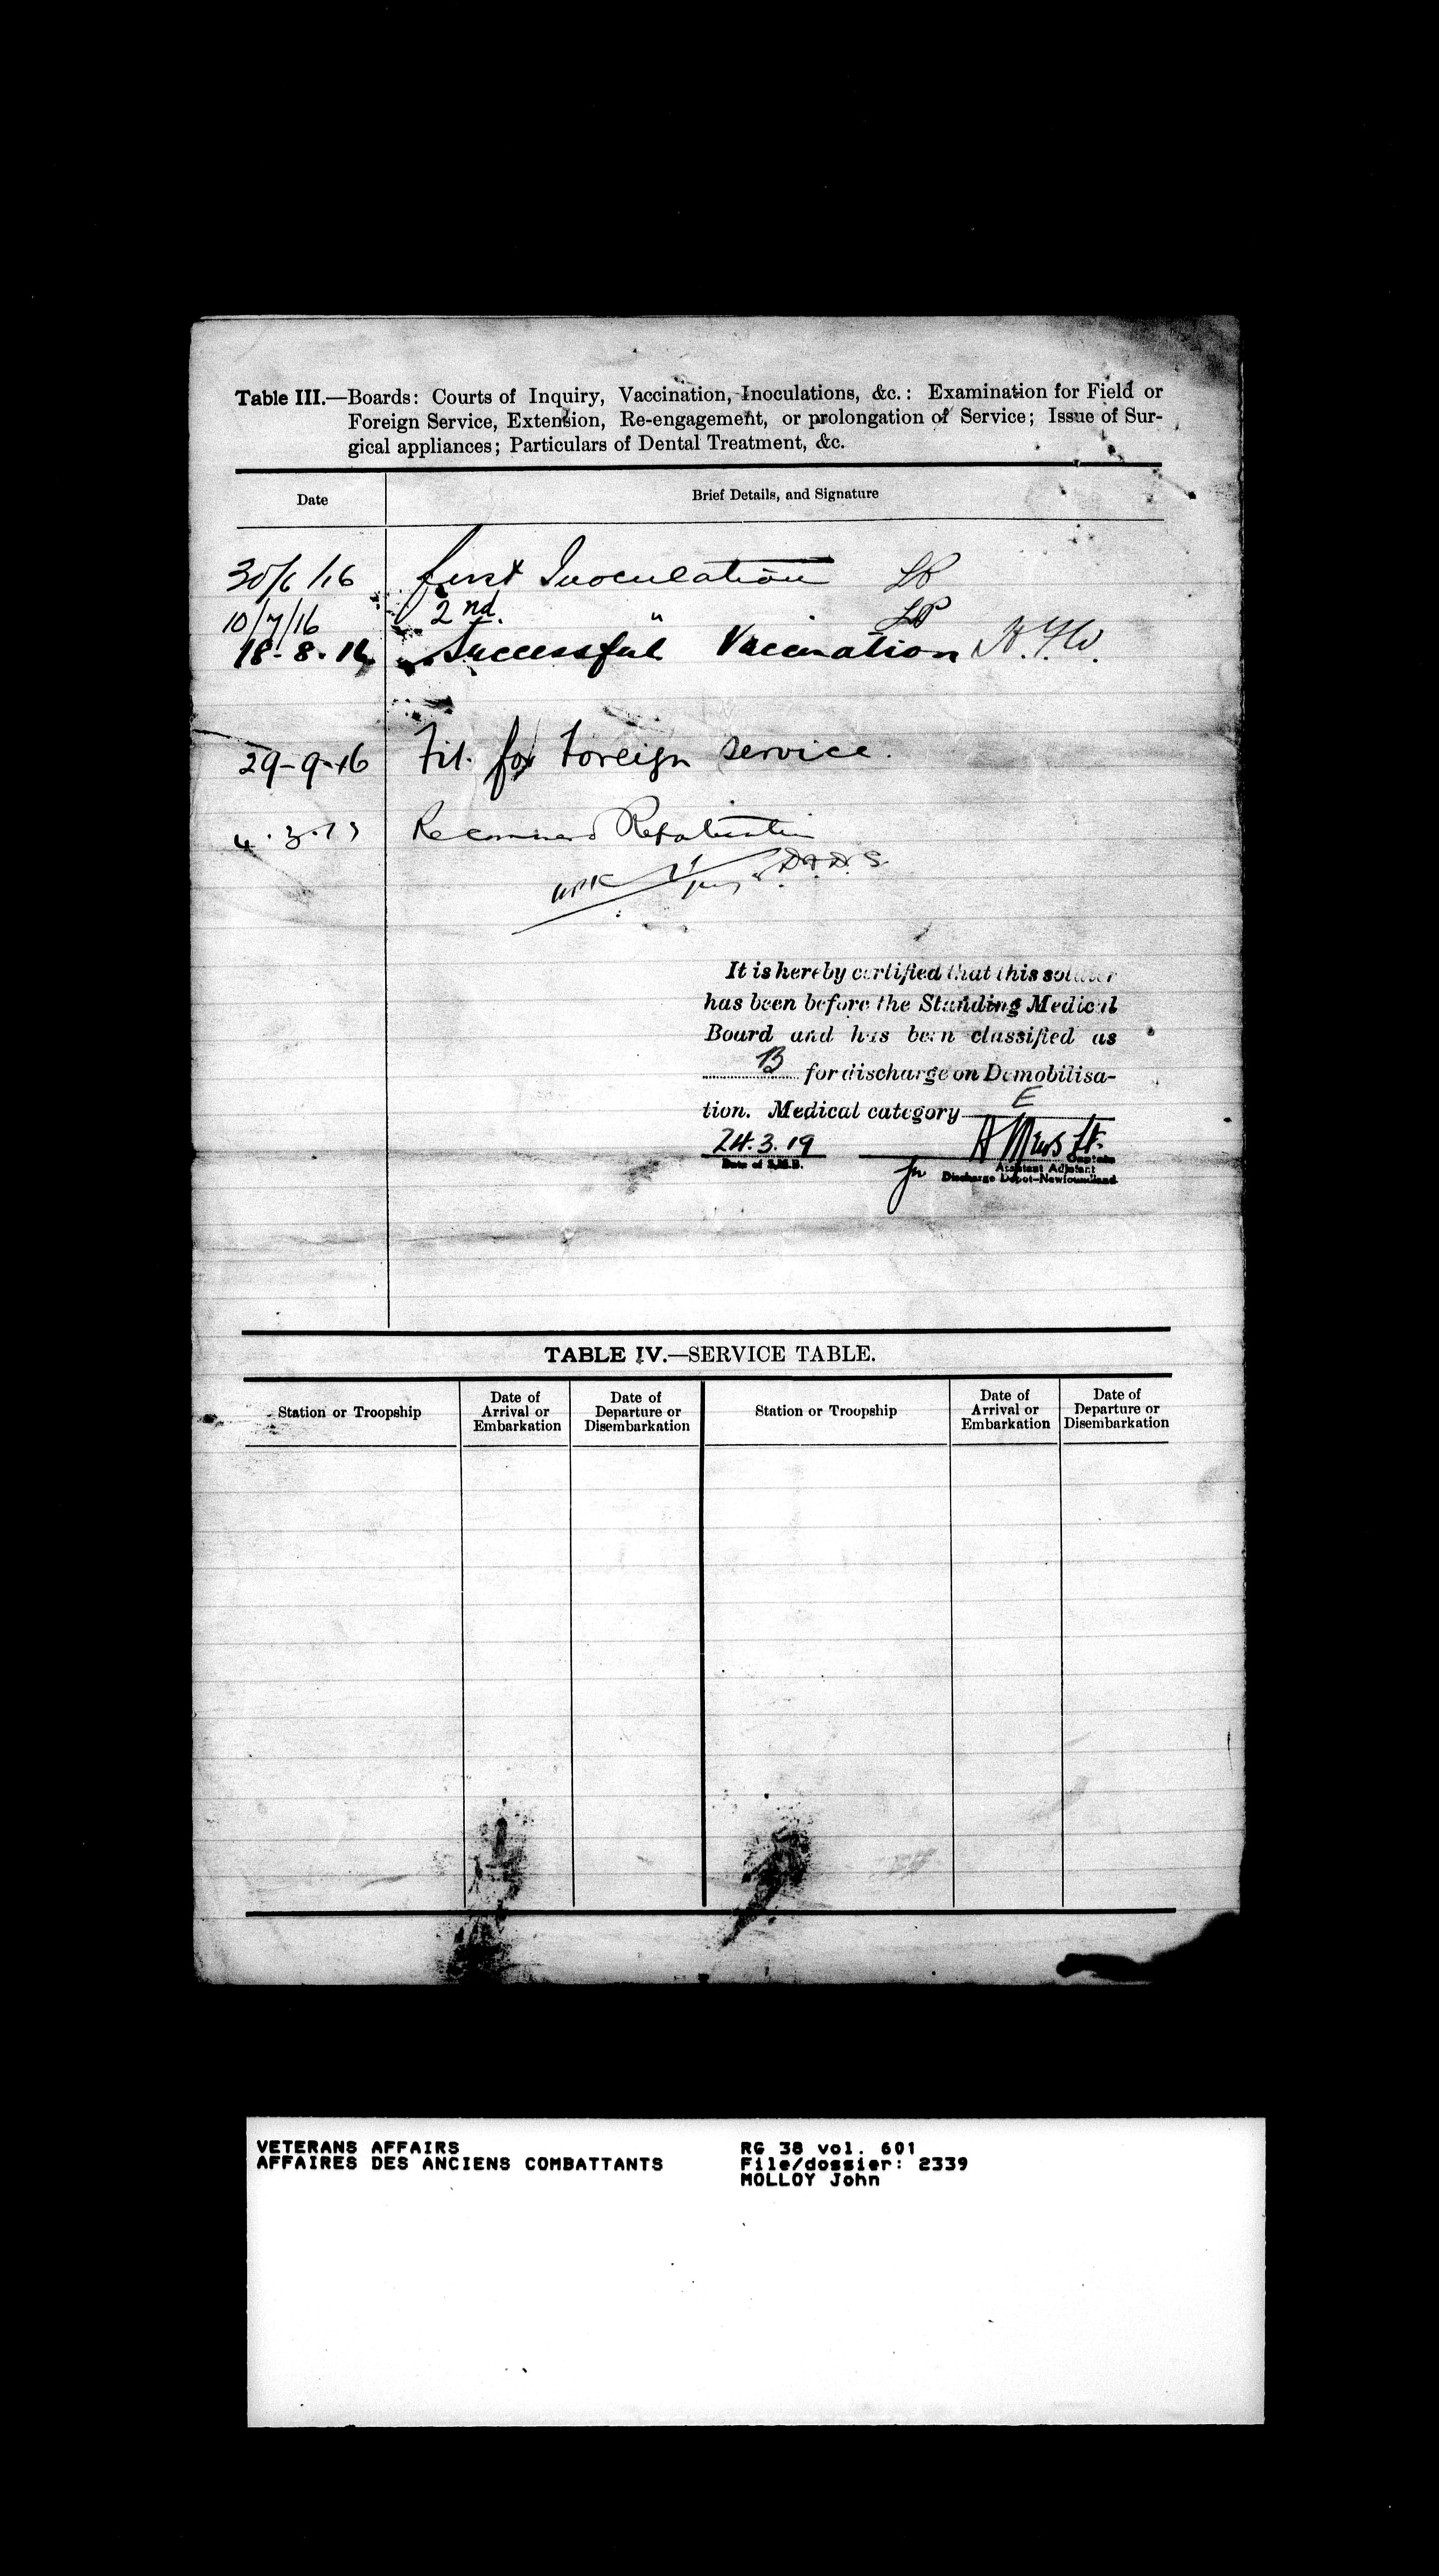 Table III.—Boards: Courts of Inquiry, Vaccination, Inoculations, &c.: Examination for Field or
Foreign Service, Extension, Re-engagement, or prolongation of Service; Issue of Sur-
gical appliances; Particulars of Dental Treatment, &c.
Date Brief Details, and Signature
30/6/16 first Inoculation LP
10/7/16 2nd. " LP
18-8-16 Successful Vaccination
29-9-16 Fit for Foreign service.
Recommend Repatriation
It is hereby certified that this soldier
has been before the Standing Medical
Board and has been classified as
B for discharge on Demobilisa-
tion. Medical category E
24.3.19
Date of S.M.B. Captain
Assistant Adjutant
for Discharge Depot—Newfoundland
TABLE IV.—SERVICE TABLE.
Station or Troopship Date of Arrival or Embarkation Date of Departure or Disembarkation Station or Troopship Date of Arrival or Embarkation Date of Departure or Disembarkation
VETERANS AFFAIRS RG 38 vol. 601
AFFAIRES DES ANCIENS COMBATTANTS File/dossier: 2339
MOLLOY John